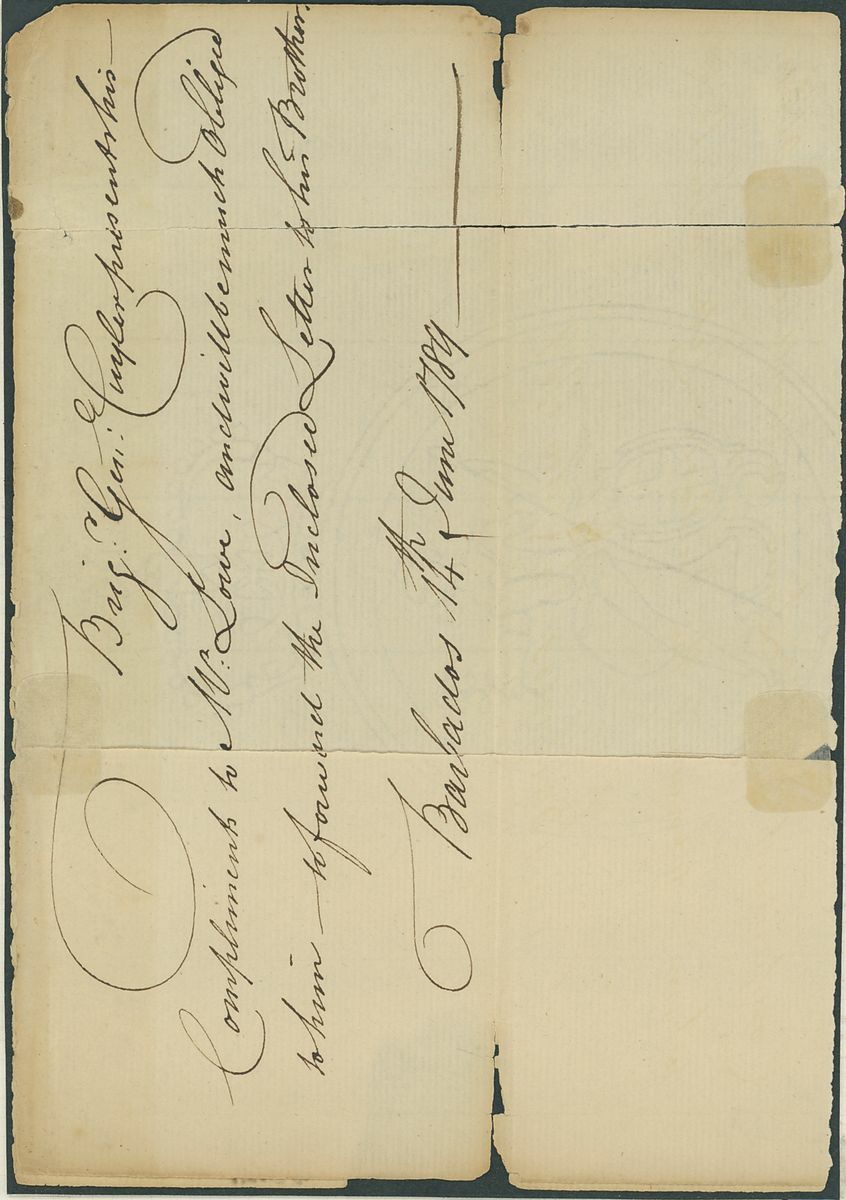 Brigr. Genl. Cuyler presents his
Compliments to Mr. Lowe, and will be much Obliged
to him — to forward the Inclosed Letter to his Brother.
Barbados 14th June 1789